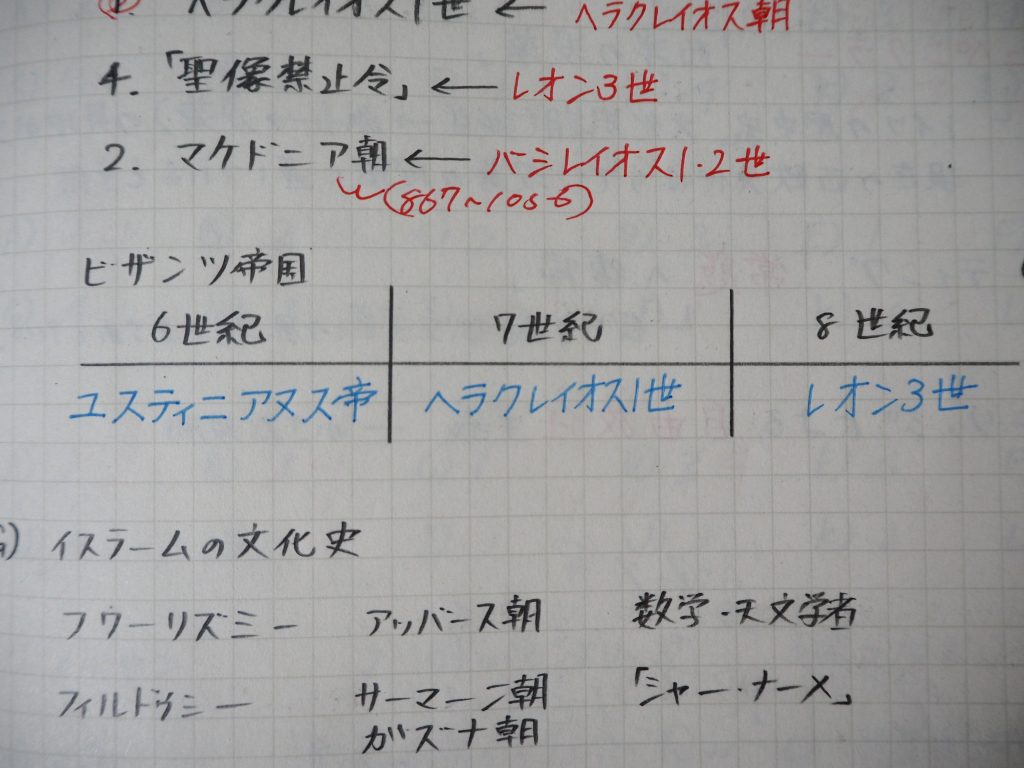 1. ヘラクレイオス1世 ← ヘラクレイオス朝
4. 「聖像禁止令」 ← レオン3世
2. マケドニア朝 ← バシレイオス1・2世
(867~1056)
ビザンツ帝国
6世紀 7世紀 8世紀
ユスティニアヌス帝 ヘラクレイオス1世 レオン3世
イスラームの文化史
フワーリズミー アッバース朝 数学・天文学者
フィルドゥシー サーマーン朝 「シャー・ナーメ」
ガズナ朝